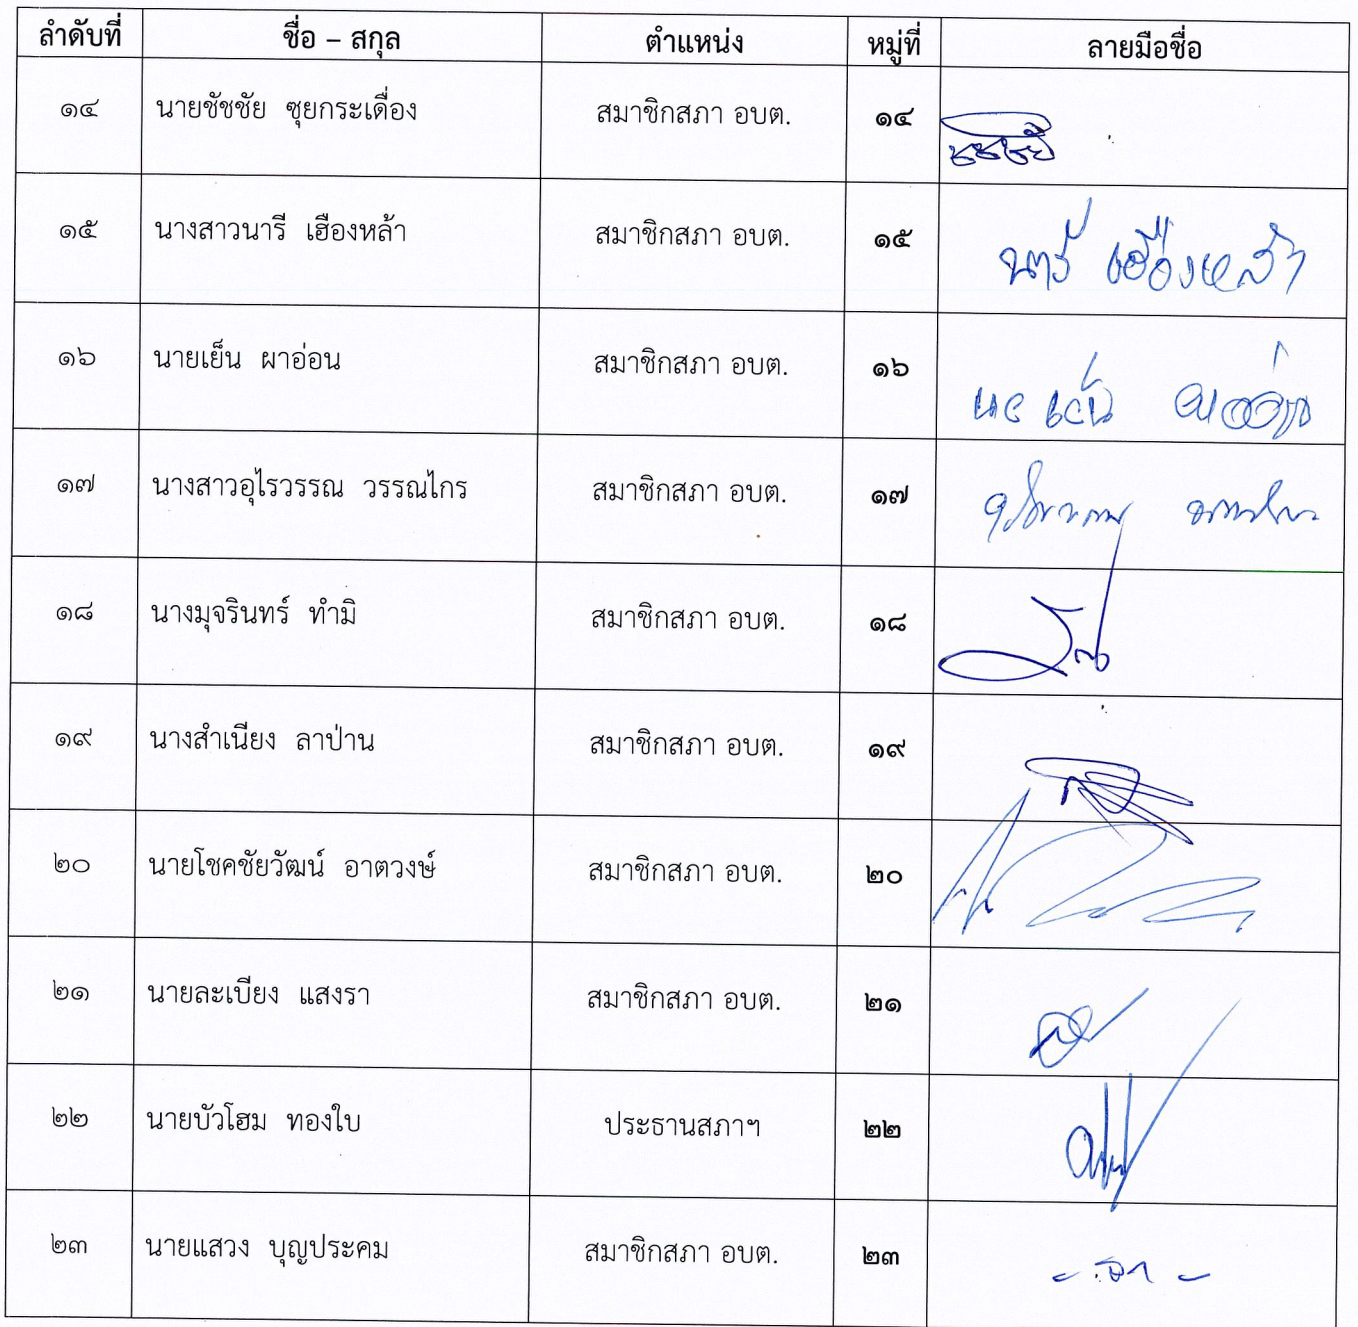 ลำดับที่ ชื่อ – สกุล ตำแหน่ง หมู่ที่ ลายมือชื่อ
๑๔ นายชัชชัย ซุยกระเดื่อง สมาชิกสภา อบต. ๑๔
๑๕ นางสาวนารี เฮืองหล้า สมาชิกสภา อบต. ๑๕ นารี เฮืองหล้า
๑๖ นายเย็น ผาอ่อน สมาชิกสภา อบต. ๑๖
๑๗ นางสาวอุไรวรรณ วรรณไกร สมาชิกสภา อบต. ๑๗
๑๘ นางมุจรินทร์ ทำมิ สมาชิกสภา อบต. ๑๘
๑๙ นางสำเนียง ลาป่าน สมาชิกสภา อบต. ๑๙
๒๐ นายโชคชัยวัฒน์ อาตวงษ์ สมาชิกสภา อบต. ๒๐
๒๑ นายละเบียง แสงรา สมาชิกสภา อบต. ๒๑
๒๒ นายบัวโฮม ทองใบ ประธานสภาฯ ๒๒
๒๓ นายแสวง บุญประคม สมาชิกสภา อบต. ๒๓ - ลา -